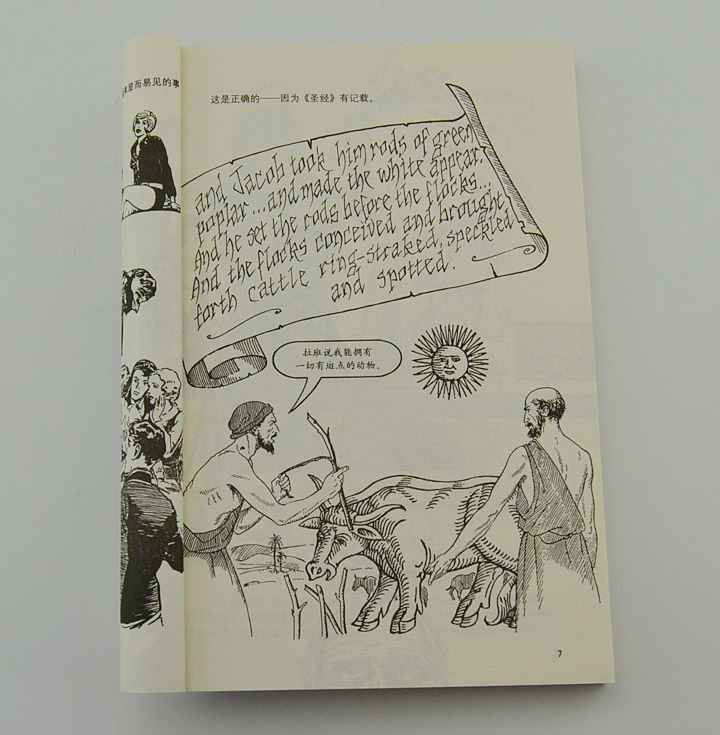 显而易见的事
这是正确的——因为《圣经》有记载。
and Jacob took him rods of green
poplar...and made the white appear.
And he set the rods before the flocks...
And the flocks conceived and brought
forth cattle ring-straked, speckled
and spotted.
拉班说我能拥有
一切有斑点的动物。
7